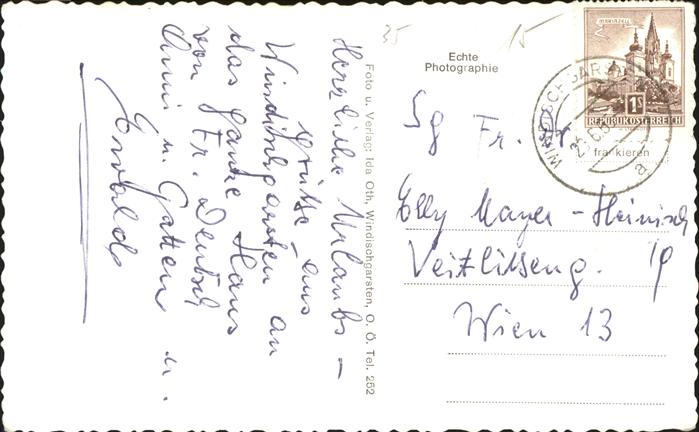 35
15
Herzliche Urlaubs-
grüsse aus
Windischgarsten an
das ganze Haus
von Fr. Deutsch
Anni u. Gatten u.
Ewald
Foto u. Verlag: Ida Oth, Windischgarsten, O. Ö. Tel. 252
Echte
Photographie
MARIAZELL
1S
REPUBLIK ÖSTERREICH
frankieren
WINDISCHGARSTEN
Fr.
Elly Mayer-Heinisch
Wien 13